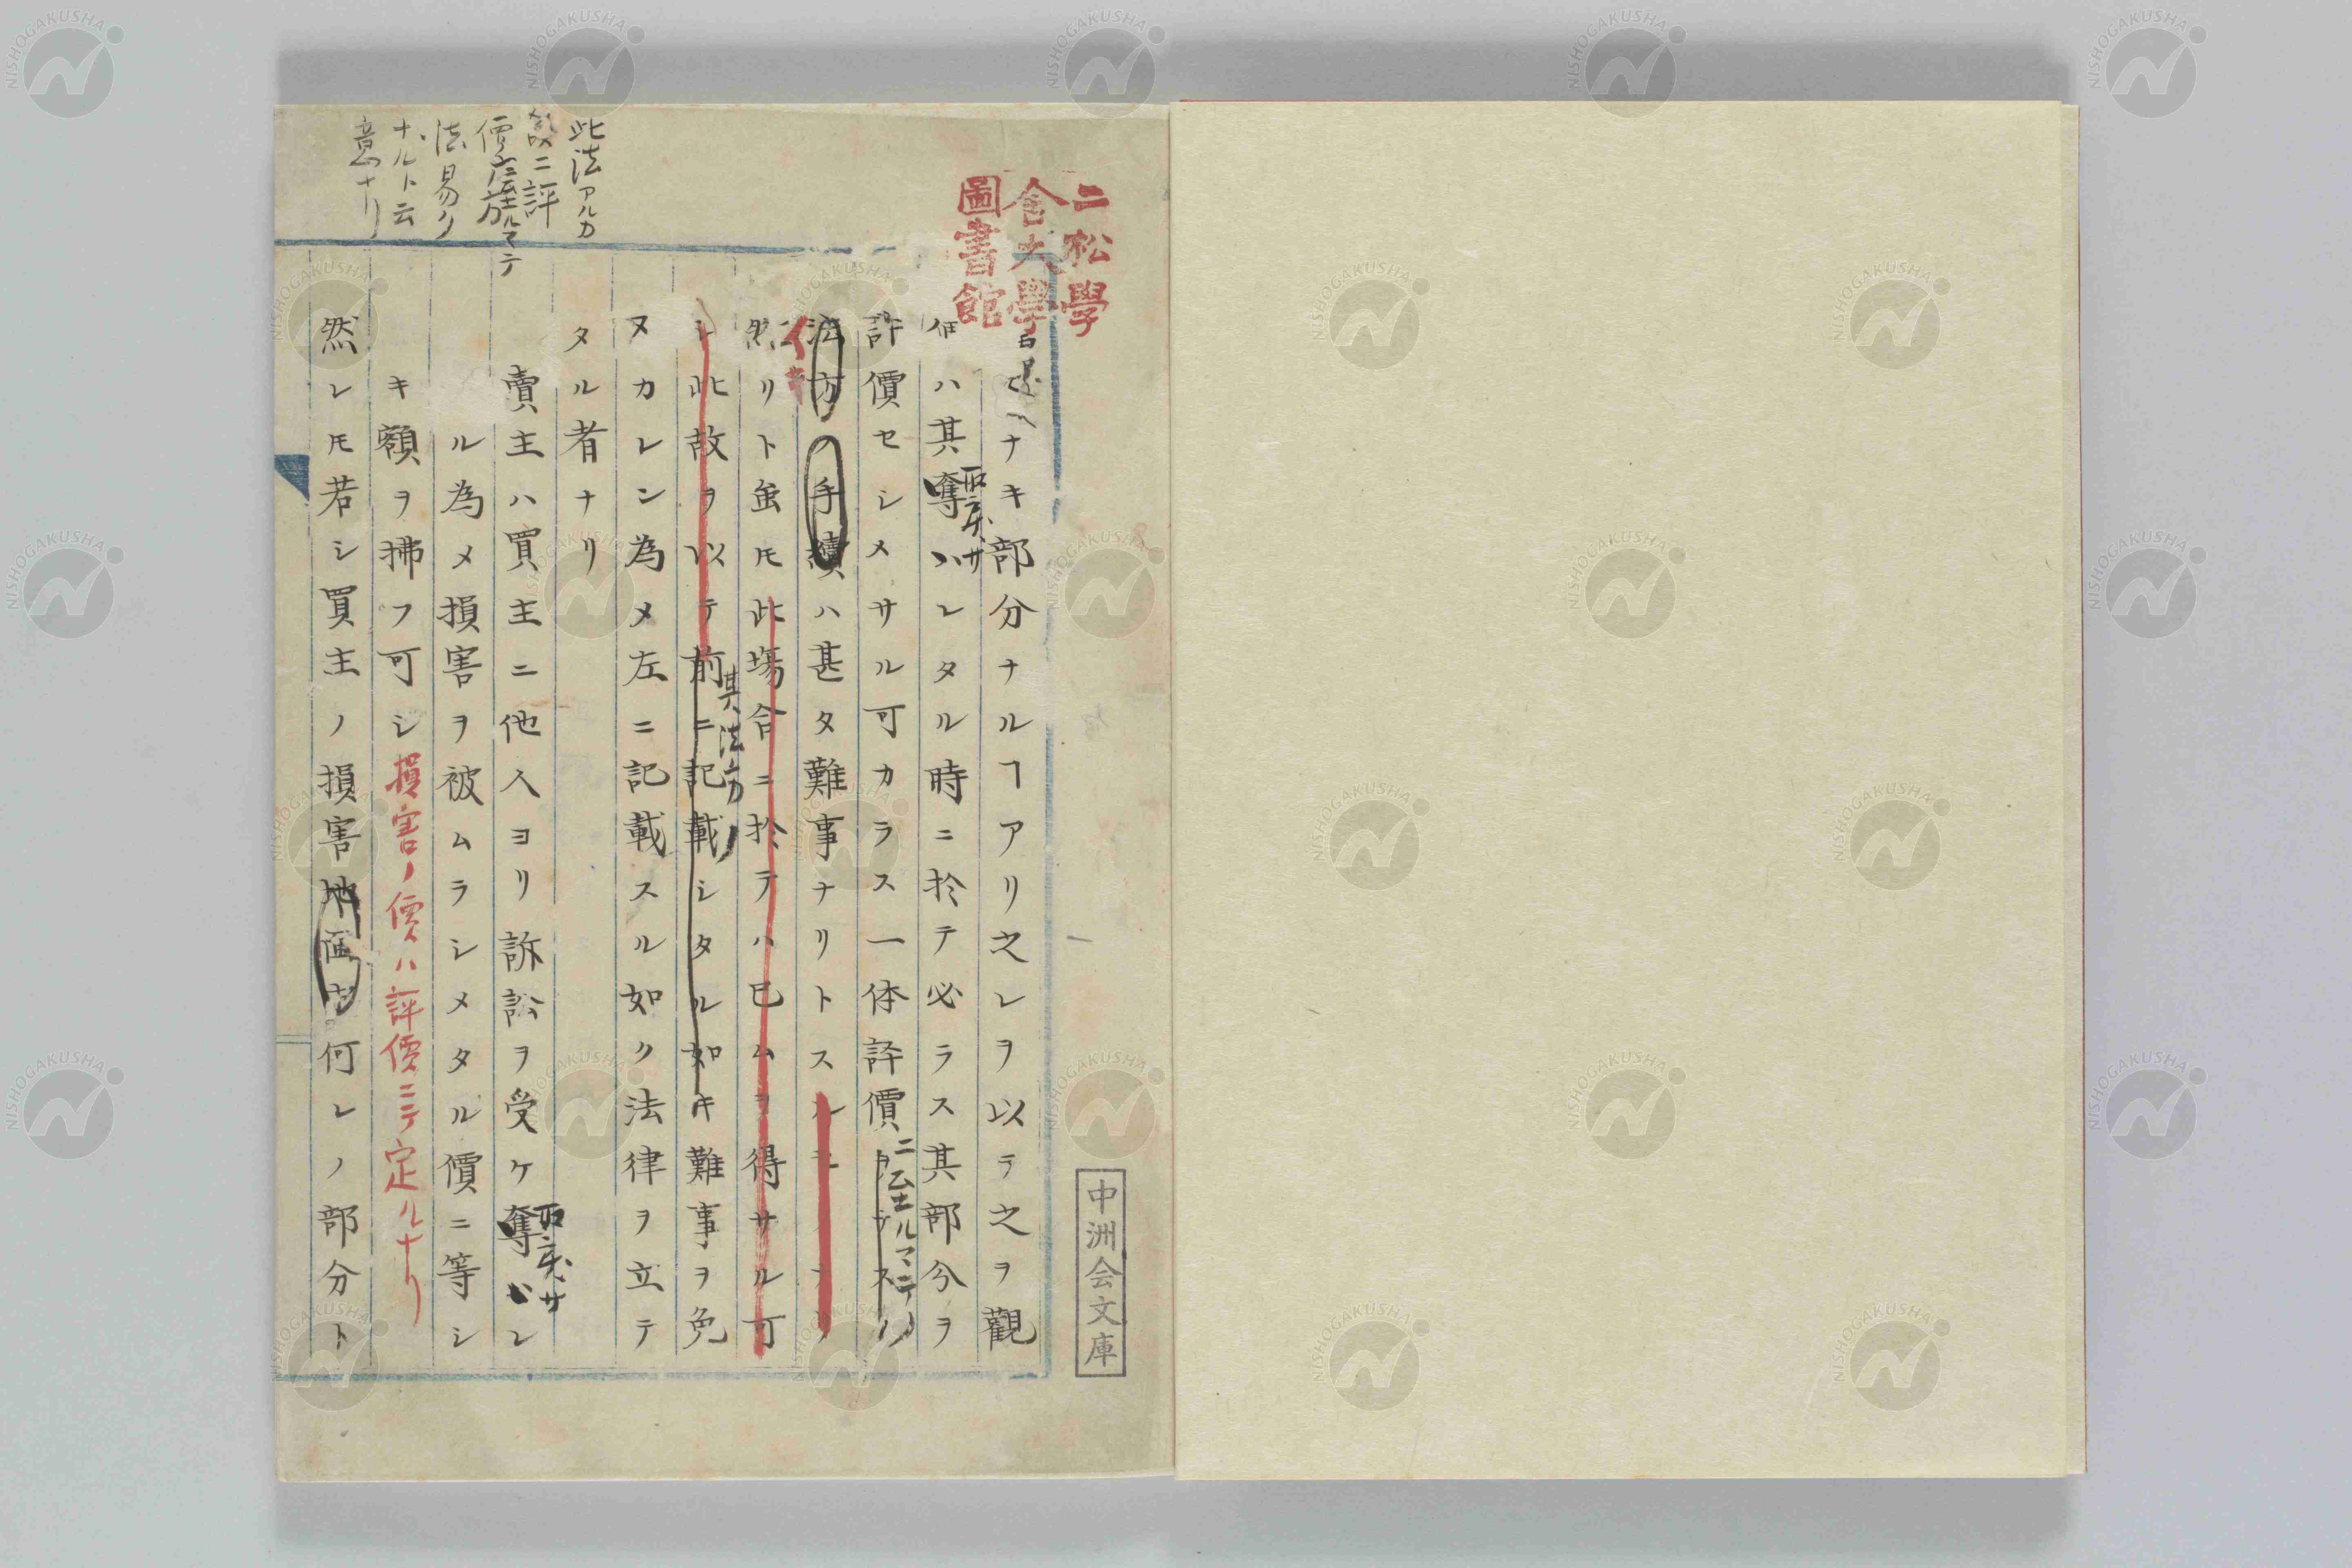 二松學
舎大學
圖書館
中洲会文庫
ナキ部分ナルヿアリ之レヲ以テ之ヲ觀
ハ其奪ハレタル時ニ於テ必ラス其部分ヲ
評價セシメサル可カラス一体評價
ニ至ルマテノ
法方ノ手續ハ甚タ難事ナリトス
然リト虽モ此塲合ニ於テハ已ムヲ得サル可
シ此故ヲ以テ前ニ記載シタル如キ難事ヲ免
其法方ノ
ヌカレン為メ左ニ記載スル如ク法律ヲ立テ
タル者ナリ
賣主ハ買主ニ他人ヨリ訴訟ヲ受ケ奪ハレ
ル為メ損害ヲ被ムラシメタル價ニ等シ
キ額ヲ拂フ可シ損害ノ價ハ評價ニテ定ルナリ
然レモ若シ買主ノ損害地面ナ何レノ部分ト
此法アルカ
故ニ評
價ニ至ルマテ
法易ク
ナルト云
意ナリ